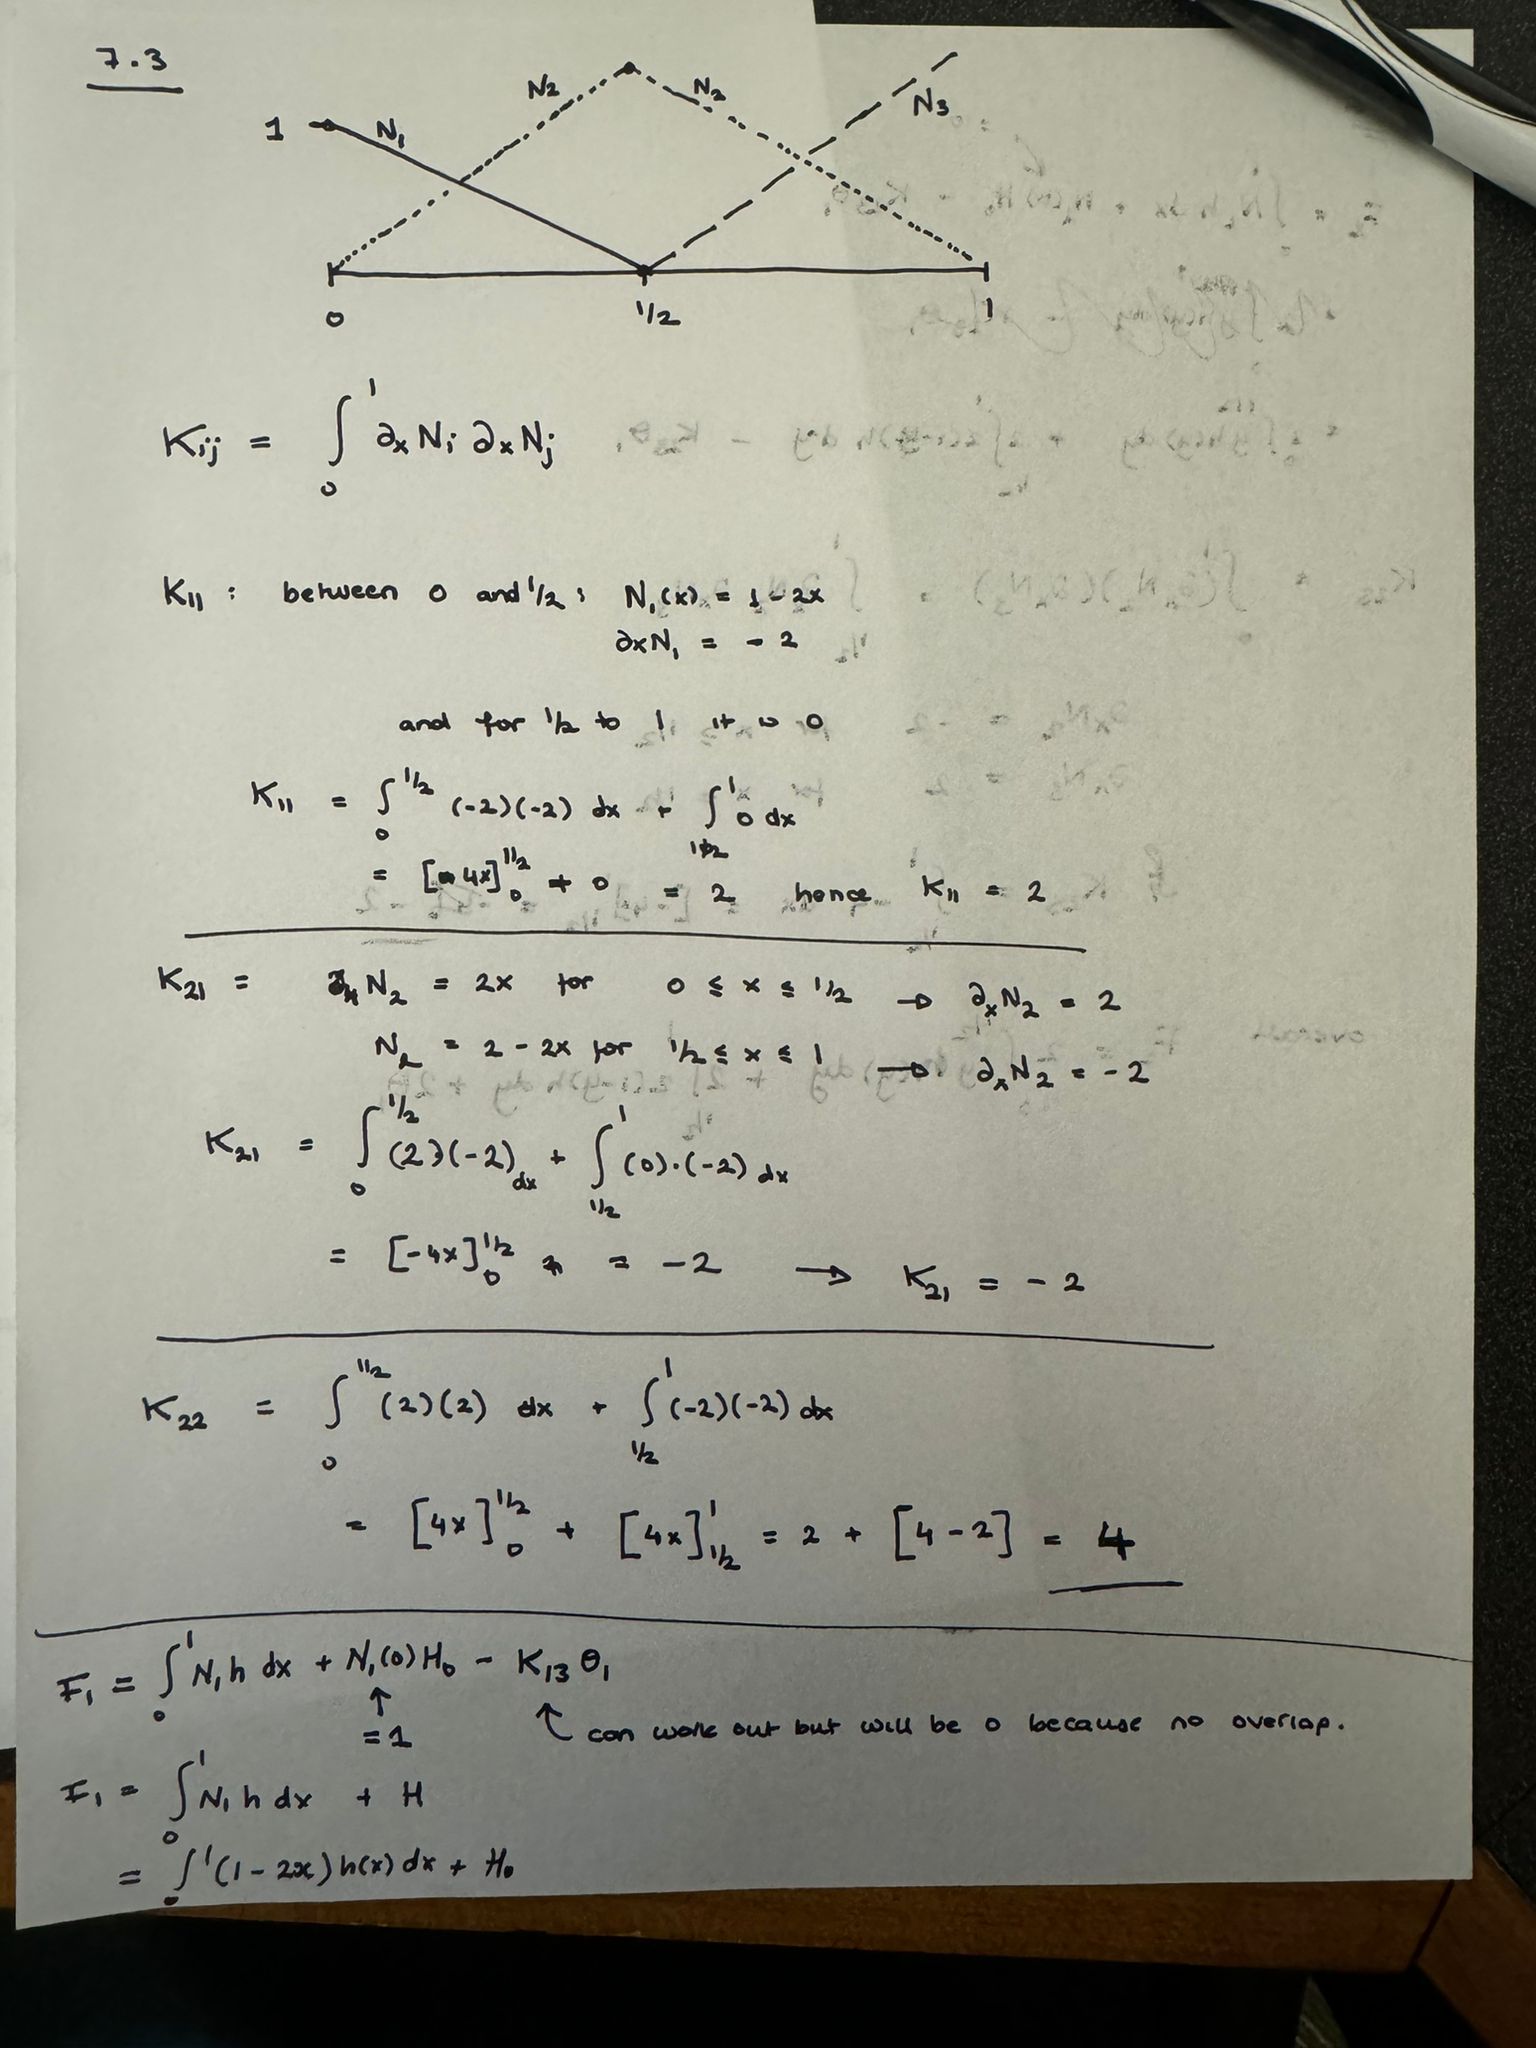 7.3
N2 N2 N3
1 N₁
0 1/2 1
Kij = ∫₀¹ ∂x Ni ∂x Nj
K11 : between 0 and 1/2 : N₁(x) = 1 - 2x
∂xN₁ = - 2
and for 1/2 to 1 it is 0
K11 = ∫₀^1/2 (-2)(-2) dx + ∫_1/2^1 0 dx
= [4x]₀^1/2 + 0 = 2 hence K11 = 2
K21 = N2 = 2x for 0 ≤ x ≤ 1/2 → ∂xN2 = 2
N2 = 2 - 2x for 1/2 ≤ x ≤ 1 → ∂xN2 = -2
K21 = ∫₀^1/2 (2)(-2) dx + ∫_1/2^1 (0)·(-2) dx
= [-4x]₀^1/2 = -2 → K21 = - 2
K22 = ∫₀^1/2 (2)(2) dx + ∫_1/2^1 (-2)(-2) dx
= [4x]₀^1/2 + [4x]_1/2^1 = 2 + [4-2] = 4
F₁ = ∫₀¹ N₁ h dx + N₁(0) H₀ - K13 θ₁
↑ = 1 ↑ can work out but will be 0 because no overlap.
F₁ = ∫₀¹ N₁ h dx + H
= ∫₀¹ (1-2x) h(x) dx + H₀